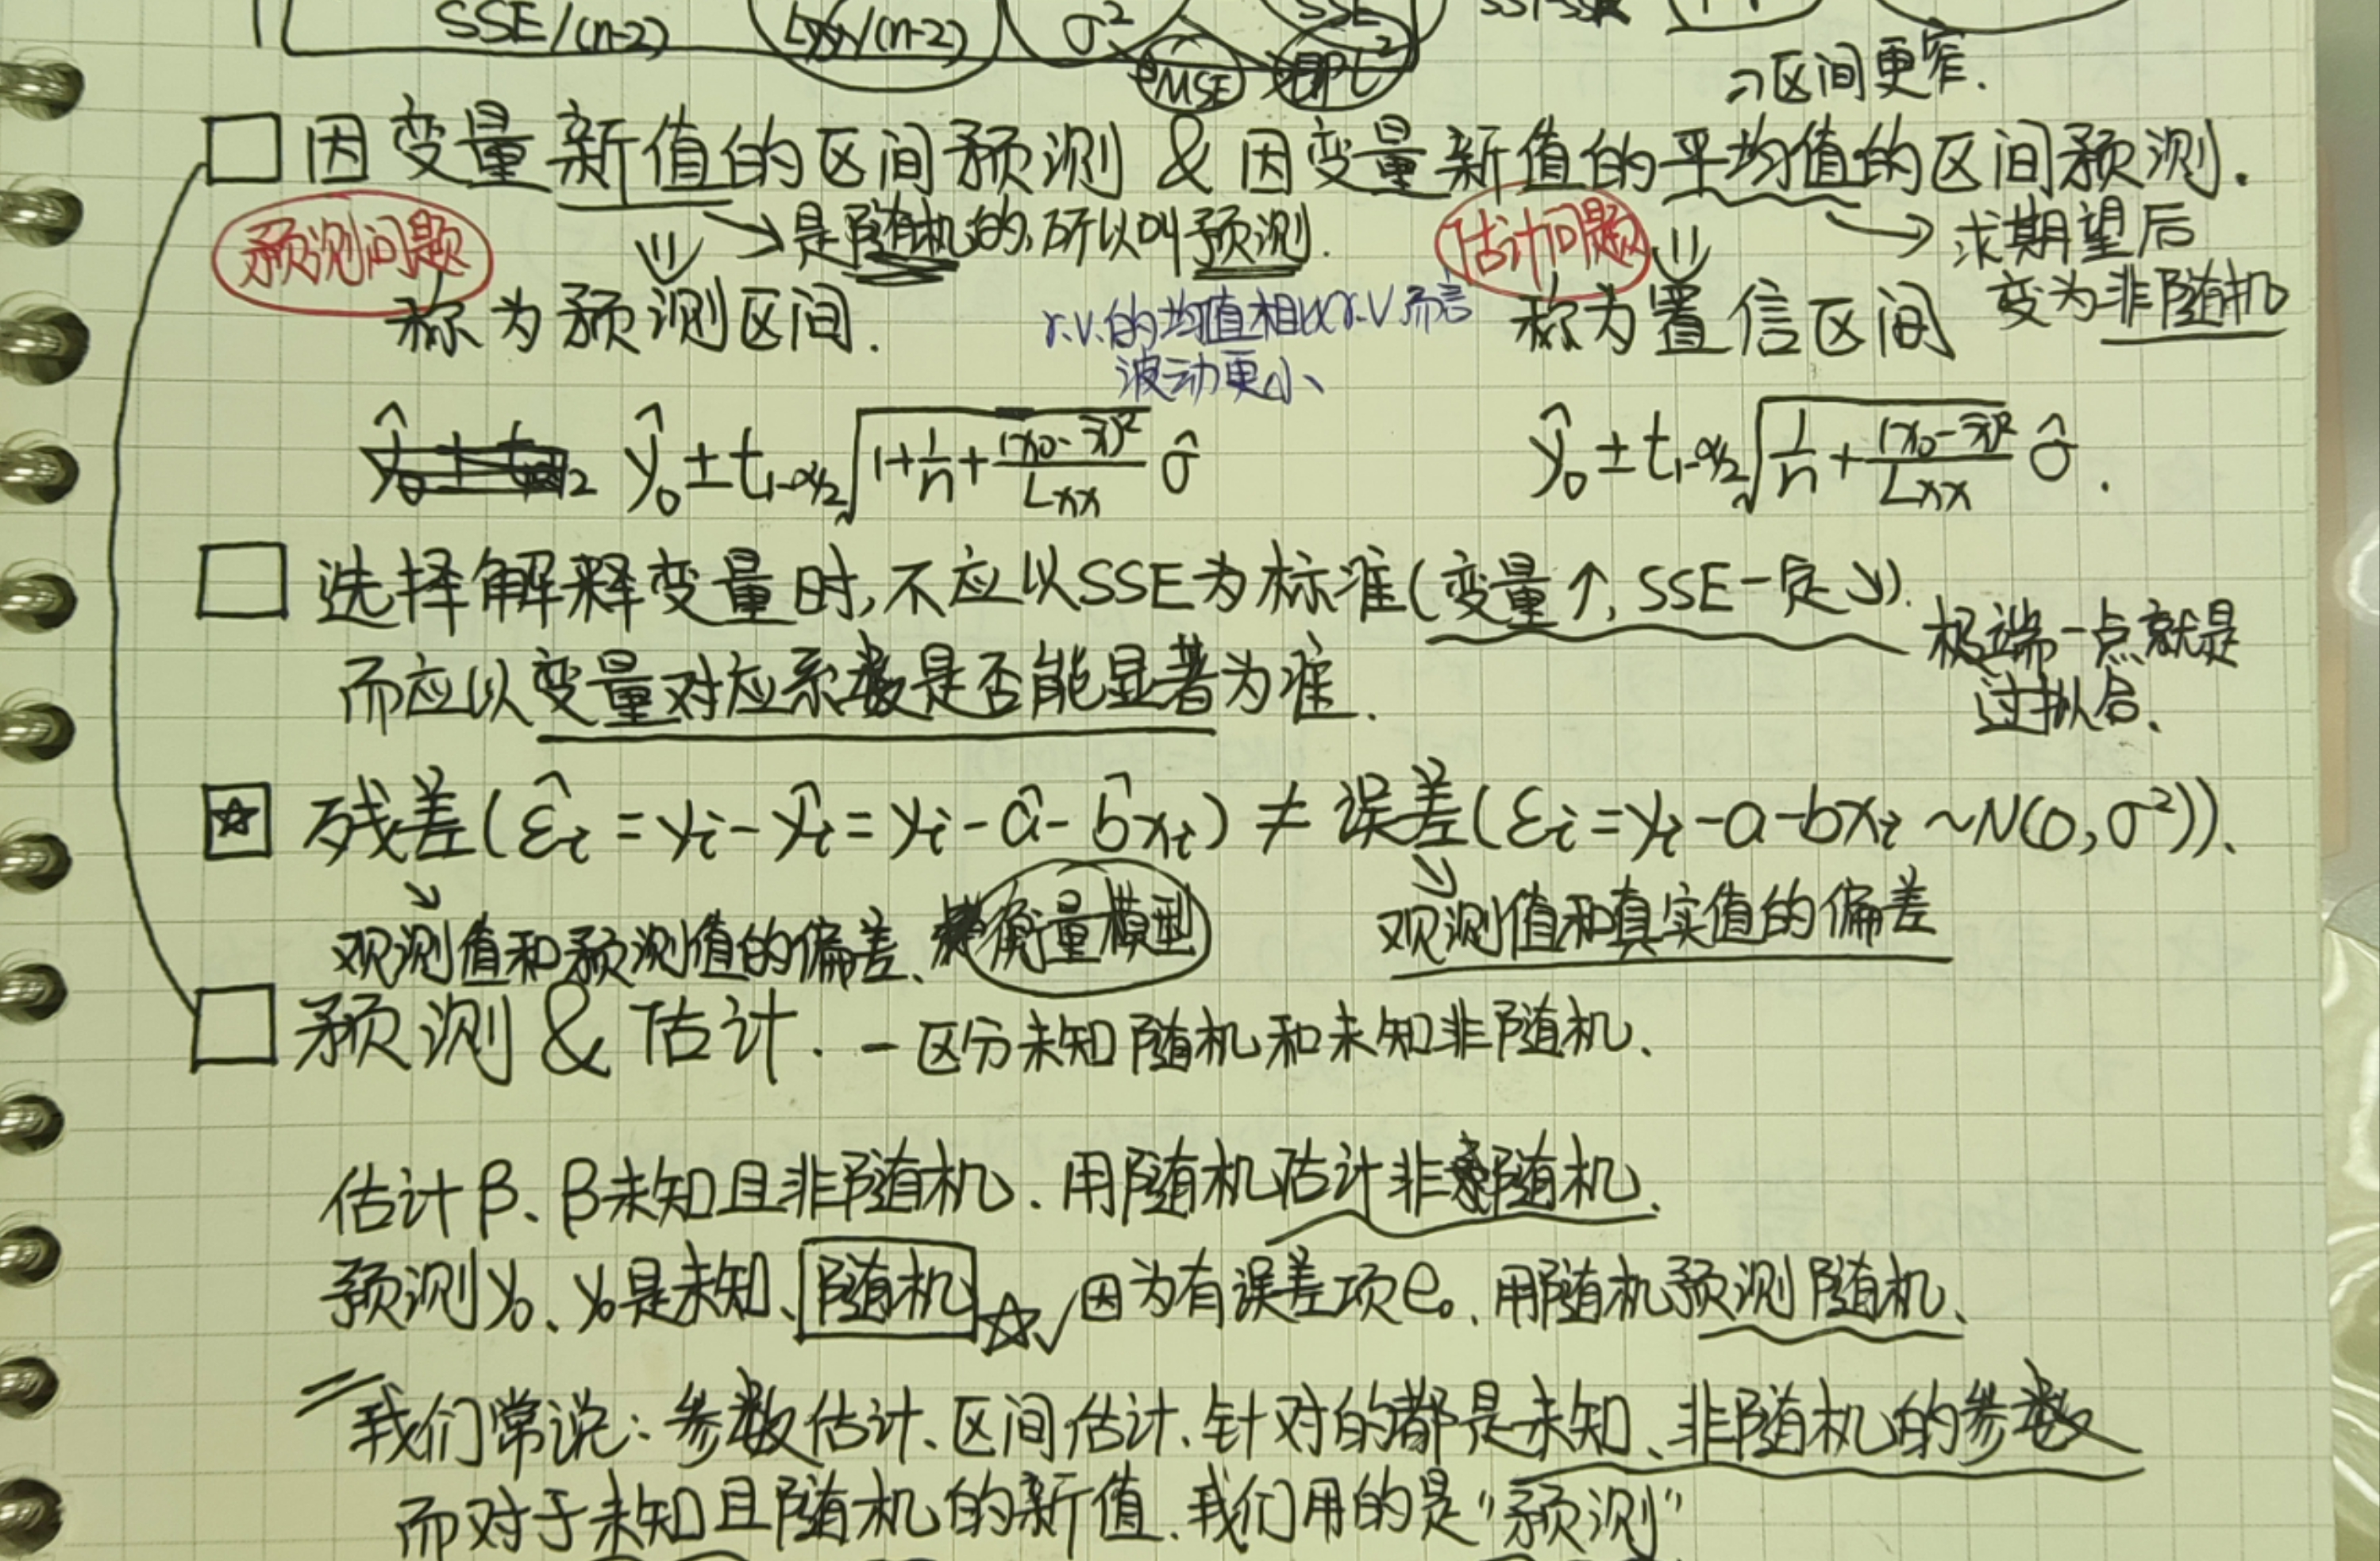 SSE/(n-2) Lyy/(n-2) σ² SSE
MSE
区间更窄.
因变量新值的区间预测 & 因变量新值的平均值的区间预测.
预测问题 → 是随机的, 所以叫预测. 估计问题 → 求期望后
变为非随机
称为预测区间. r.v.的均值相比r.v而言 称为置信区间
波动更小、
ŷ₀ ± t₁₋α/₂ √(1+1/n+(x₀-x̄)²/Lxx) σ̂ ŷ₀ ± t₁₋α/₂ √(1/n+(x₀-x̄)²/Lxx) σ̂.
选择解释变量时,不应以SSE为标准(变量↑, SSE一定↘).
极端一点就是
过拟合、
而应以变量对应系数是否能显著为准.
☆ 残差(ε̂i = yi - ŷi = yi - â - b̂xi) ≠ 误差(εi = yi - a - bxi ~ N(0, σ²)).
观测值和预测值的偏差、衡量模型 观测值和真实值的偏差
预测 & 估计. - 区分未知随机和未知非随机.
估计β、β未知且非随机. 用随机估计非随机.
预测y₀、y₀是未知、随机 ☆ 因为有误差项e₀. 用随机预测随机、
我们常说: 参数估计、区间估计、针对的都是未知、非随机的参数
而对于未知且随机的新值、我们用的是"预测"